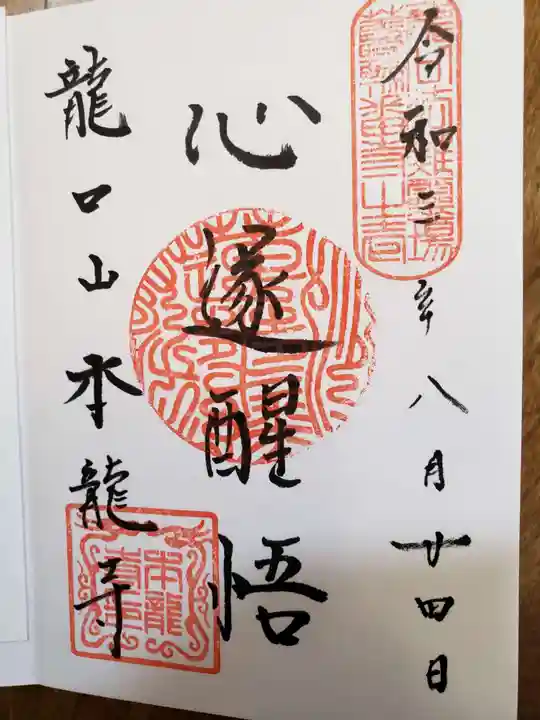 令和三年八月廿四日
心遂醒悟
龍口山本龍寺